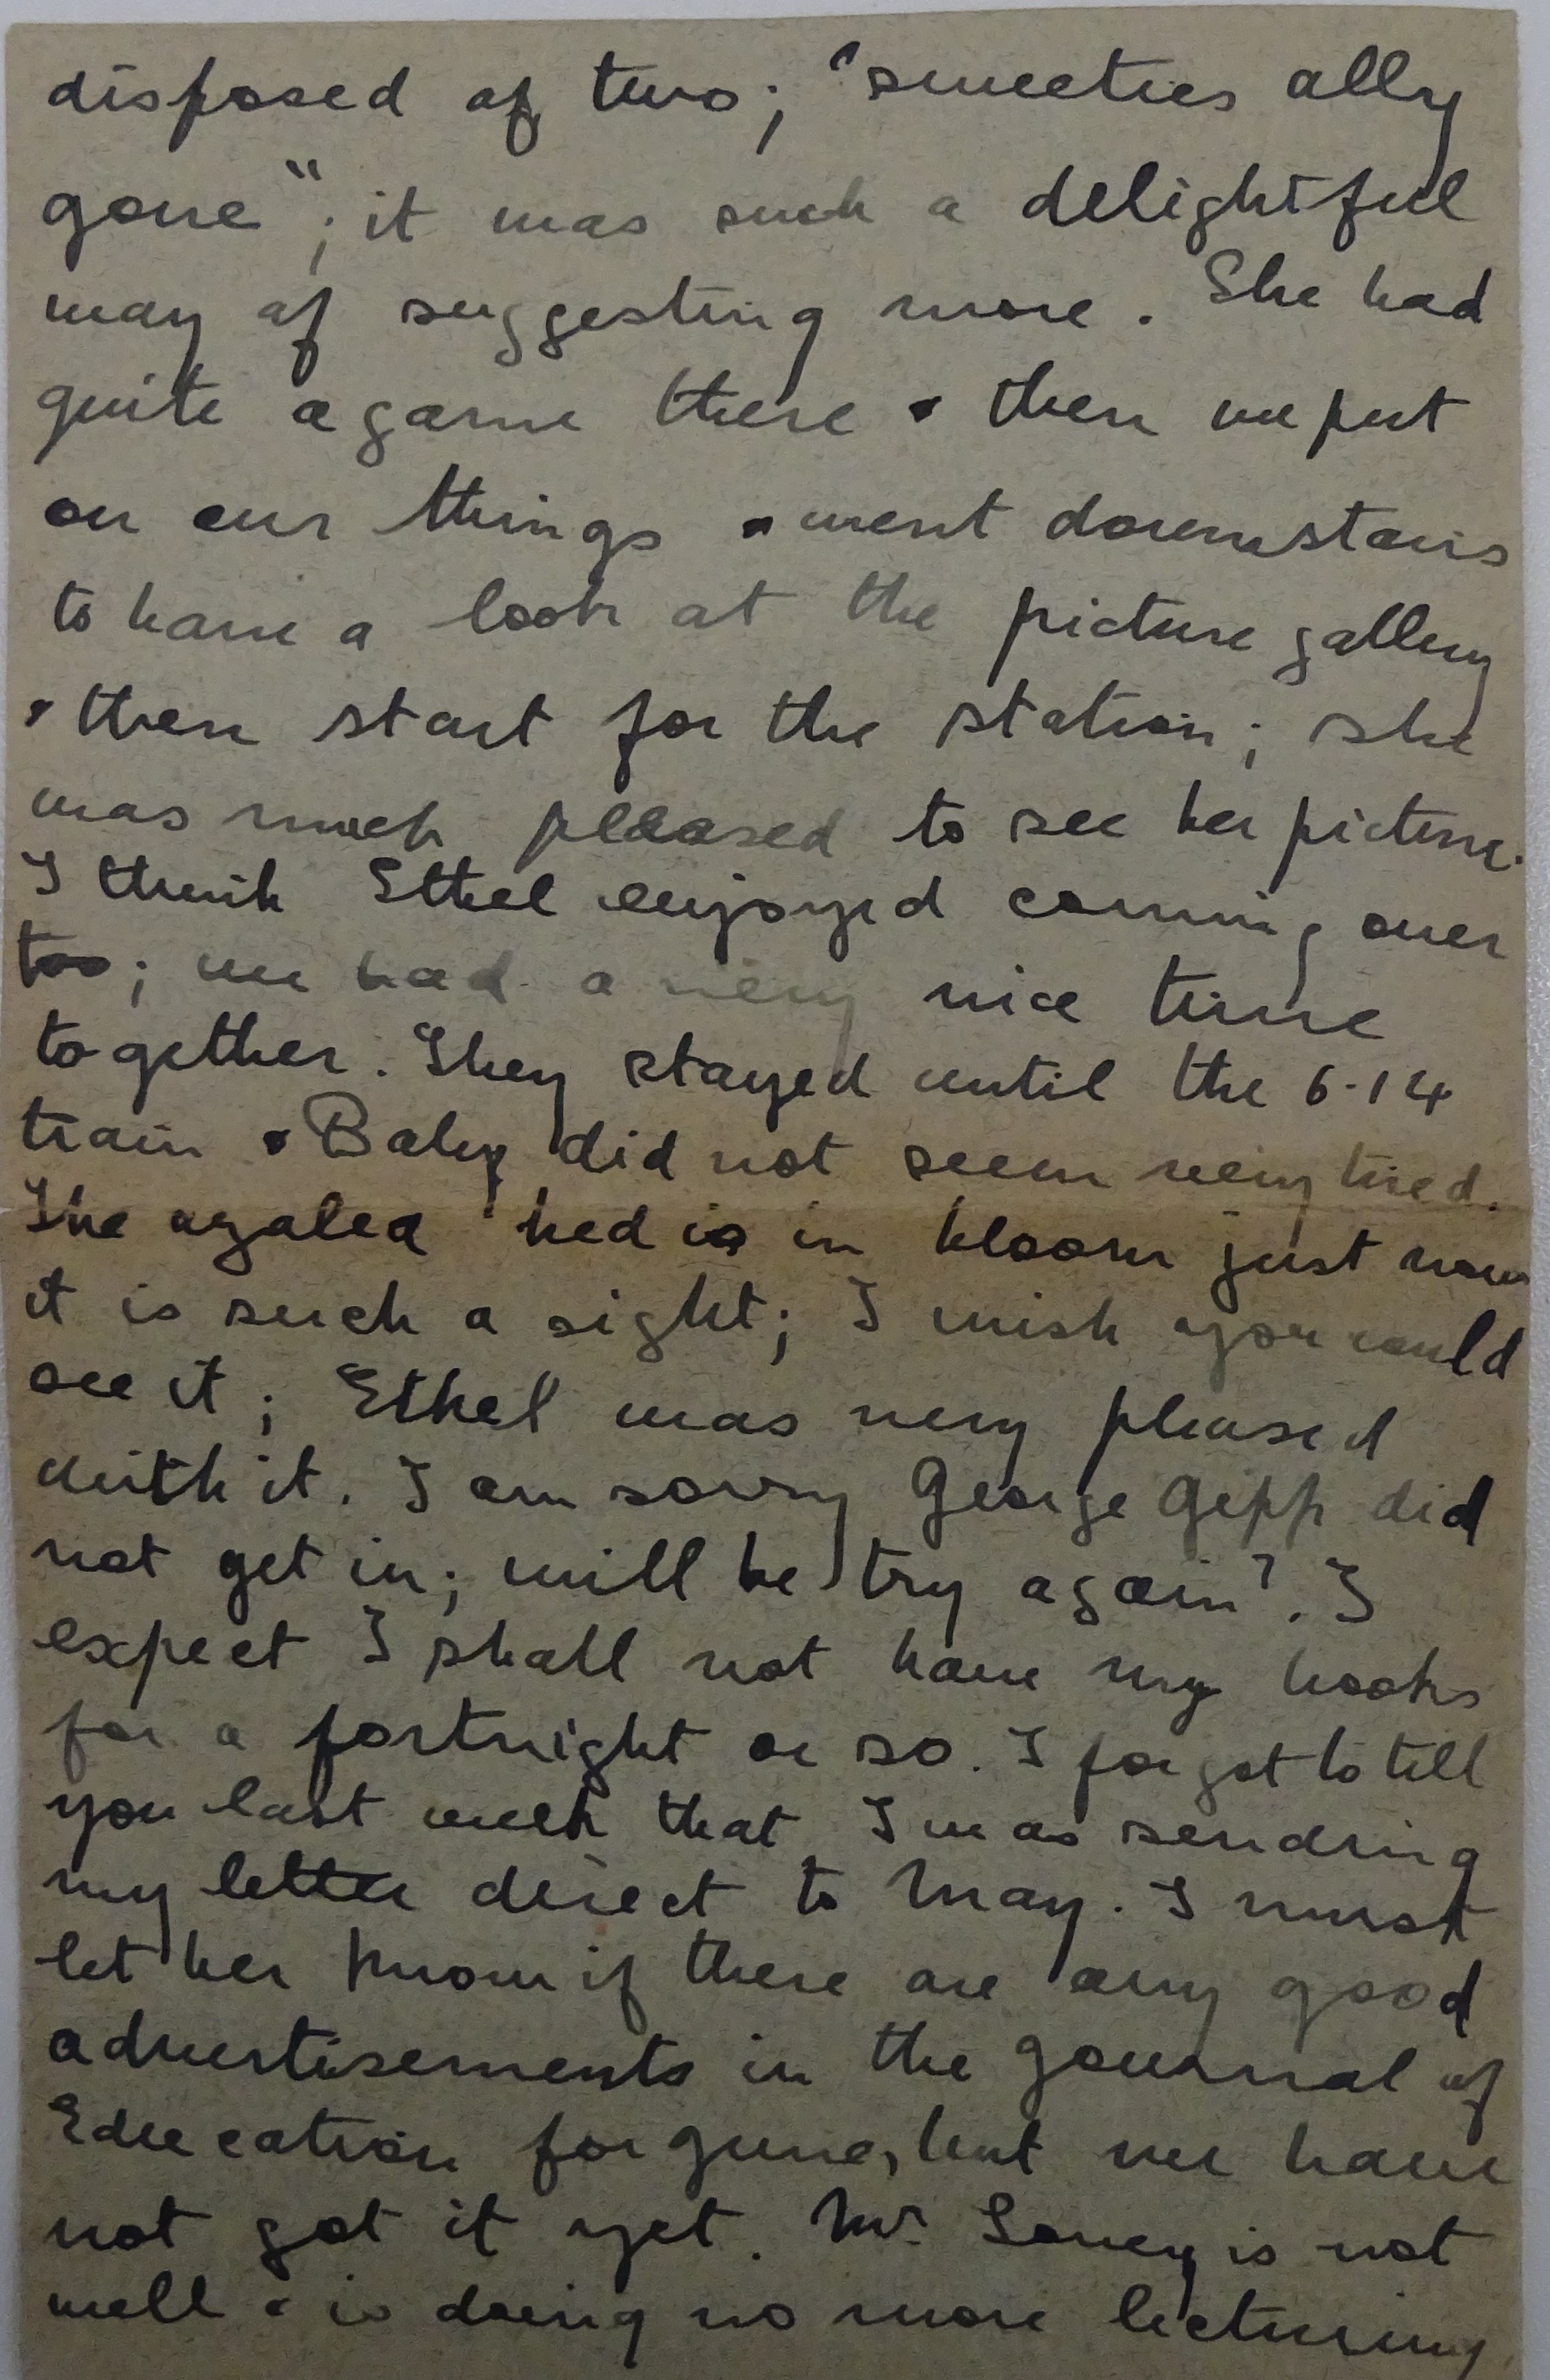 disposed of two; "sweeties ally
gone"; it was such a delightful
way of suggesting more. She had
quite a game there & then we put
on our things & went downstairs
to have a look at the picture gallery
& then start for the station; she
was much pleased to see her picture.
I think Ethel enjoyed coming over
too; we had a very nice time
together. They stayed until the 6.14
train & Baby did not seem very tired.
The azalea bed is in bloom just now
it is such a sight; I wish you could
see it; Ethel was very pleased
with it. I am sorry George Gipp did
not get in; will he try again?. I
expect I shall not have my books
for a fortnight or so. I forgot to tell
you last week that I was sending
my letter direct to May. I must
let her know if there are any good
advertisements in the Journal of
Education for June, but we have
not got it yet. Mr. Loney is not
well & is doing no more lecturing